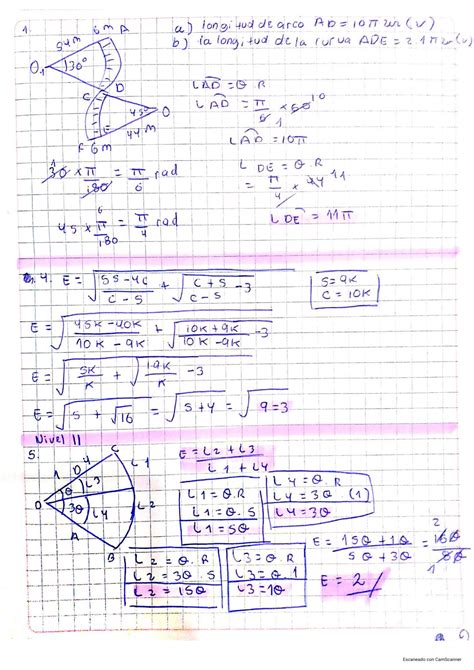 1.
a) longitud de arco AD = 10π m (v)
b) la longitud de la curva ADE = 21π m (v)
54m 6m A
O₁ 30°
D
C 45° O
44m
F 6m E
LAD = θ.R
LAD = π/6 × 60 10
1
LAD = 10π
L DE = θ.R
= π/4 × 44 11
LDE = 11π
1 30 × π/180 = π/6 rad
6
45 × π/180 = π/4 rad
4. E = √(5S-4C/C-S + √(C+S/C-S -3
S = 9K
C = 10K
E = √(45K-40K/10K-9K + √(10K+9K/10K-9K -3
E = √(5K/K + √(19K/K -3
E = √5 + √16 = √5+4 = √9 = 3
Nivel II
5.
C
4
D
1
L3
L1
O θ
3θ
L4
L2
A
B
E = L2 + L3/L1 + L4
L1 = θ.R
L1 = θ.5
L1 = 5θ
L4 = θ.R
L4 = 3θ (1)
L4 = 3θ
L2 = θ.R
L2 = 3θ.5
L2 = 15θ
L3 = θ.R
L3 = θ.1
L3 = 1θ
E = 15θ + 1θ/5θ + 3θ = 16θ/8θ
2
1
E = 2
Escaneado con CamScanner